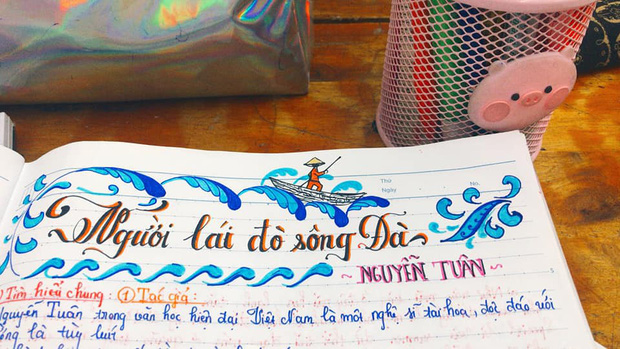 Thứ
Ngày
No.
Người lái đò sông Đà
~ NGUYỄN TUÂN ~
Tìm hiểu chung: ① Tác giả:
Nguyễn Tuân trong văn học hiện đại Việt Nam là một nghệ sĩ tài hoa, độc đáo với
là tùy bút